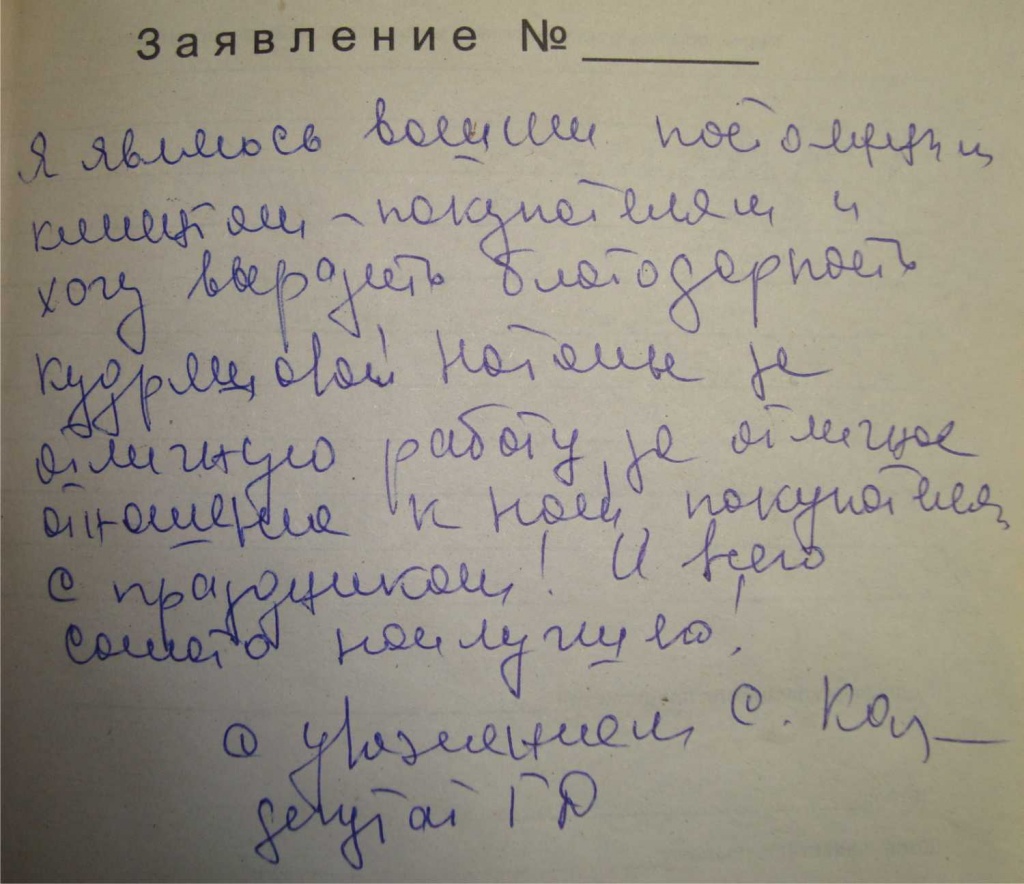 Заявление № ______
Я являюсь вашим постоянным
клиентом - покупателям и
хочу выразить благодарность
Кудряшовой Наталье за
отличную работу, за отличное
отношение к нам, покупателям
с праздником! И всего
самого наилучшего!
С уважением С.
депутат ГД